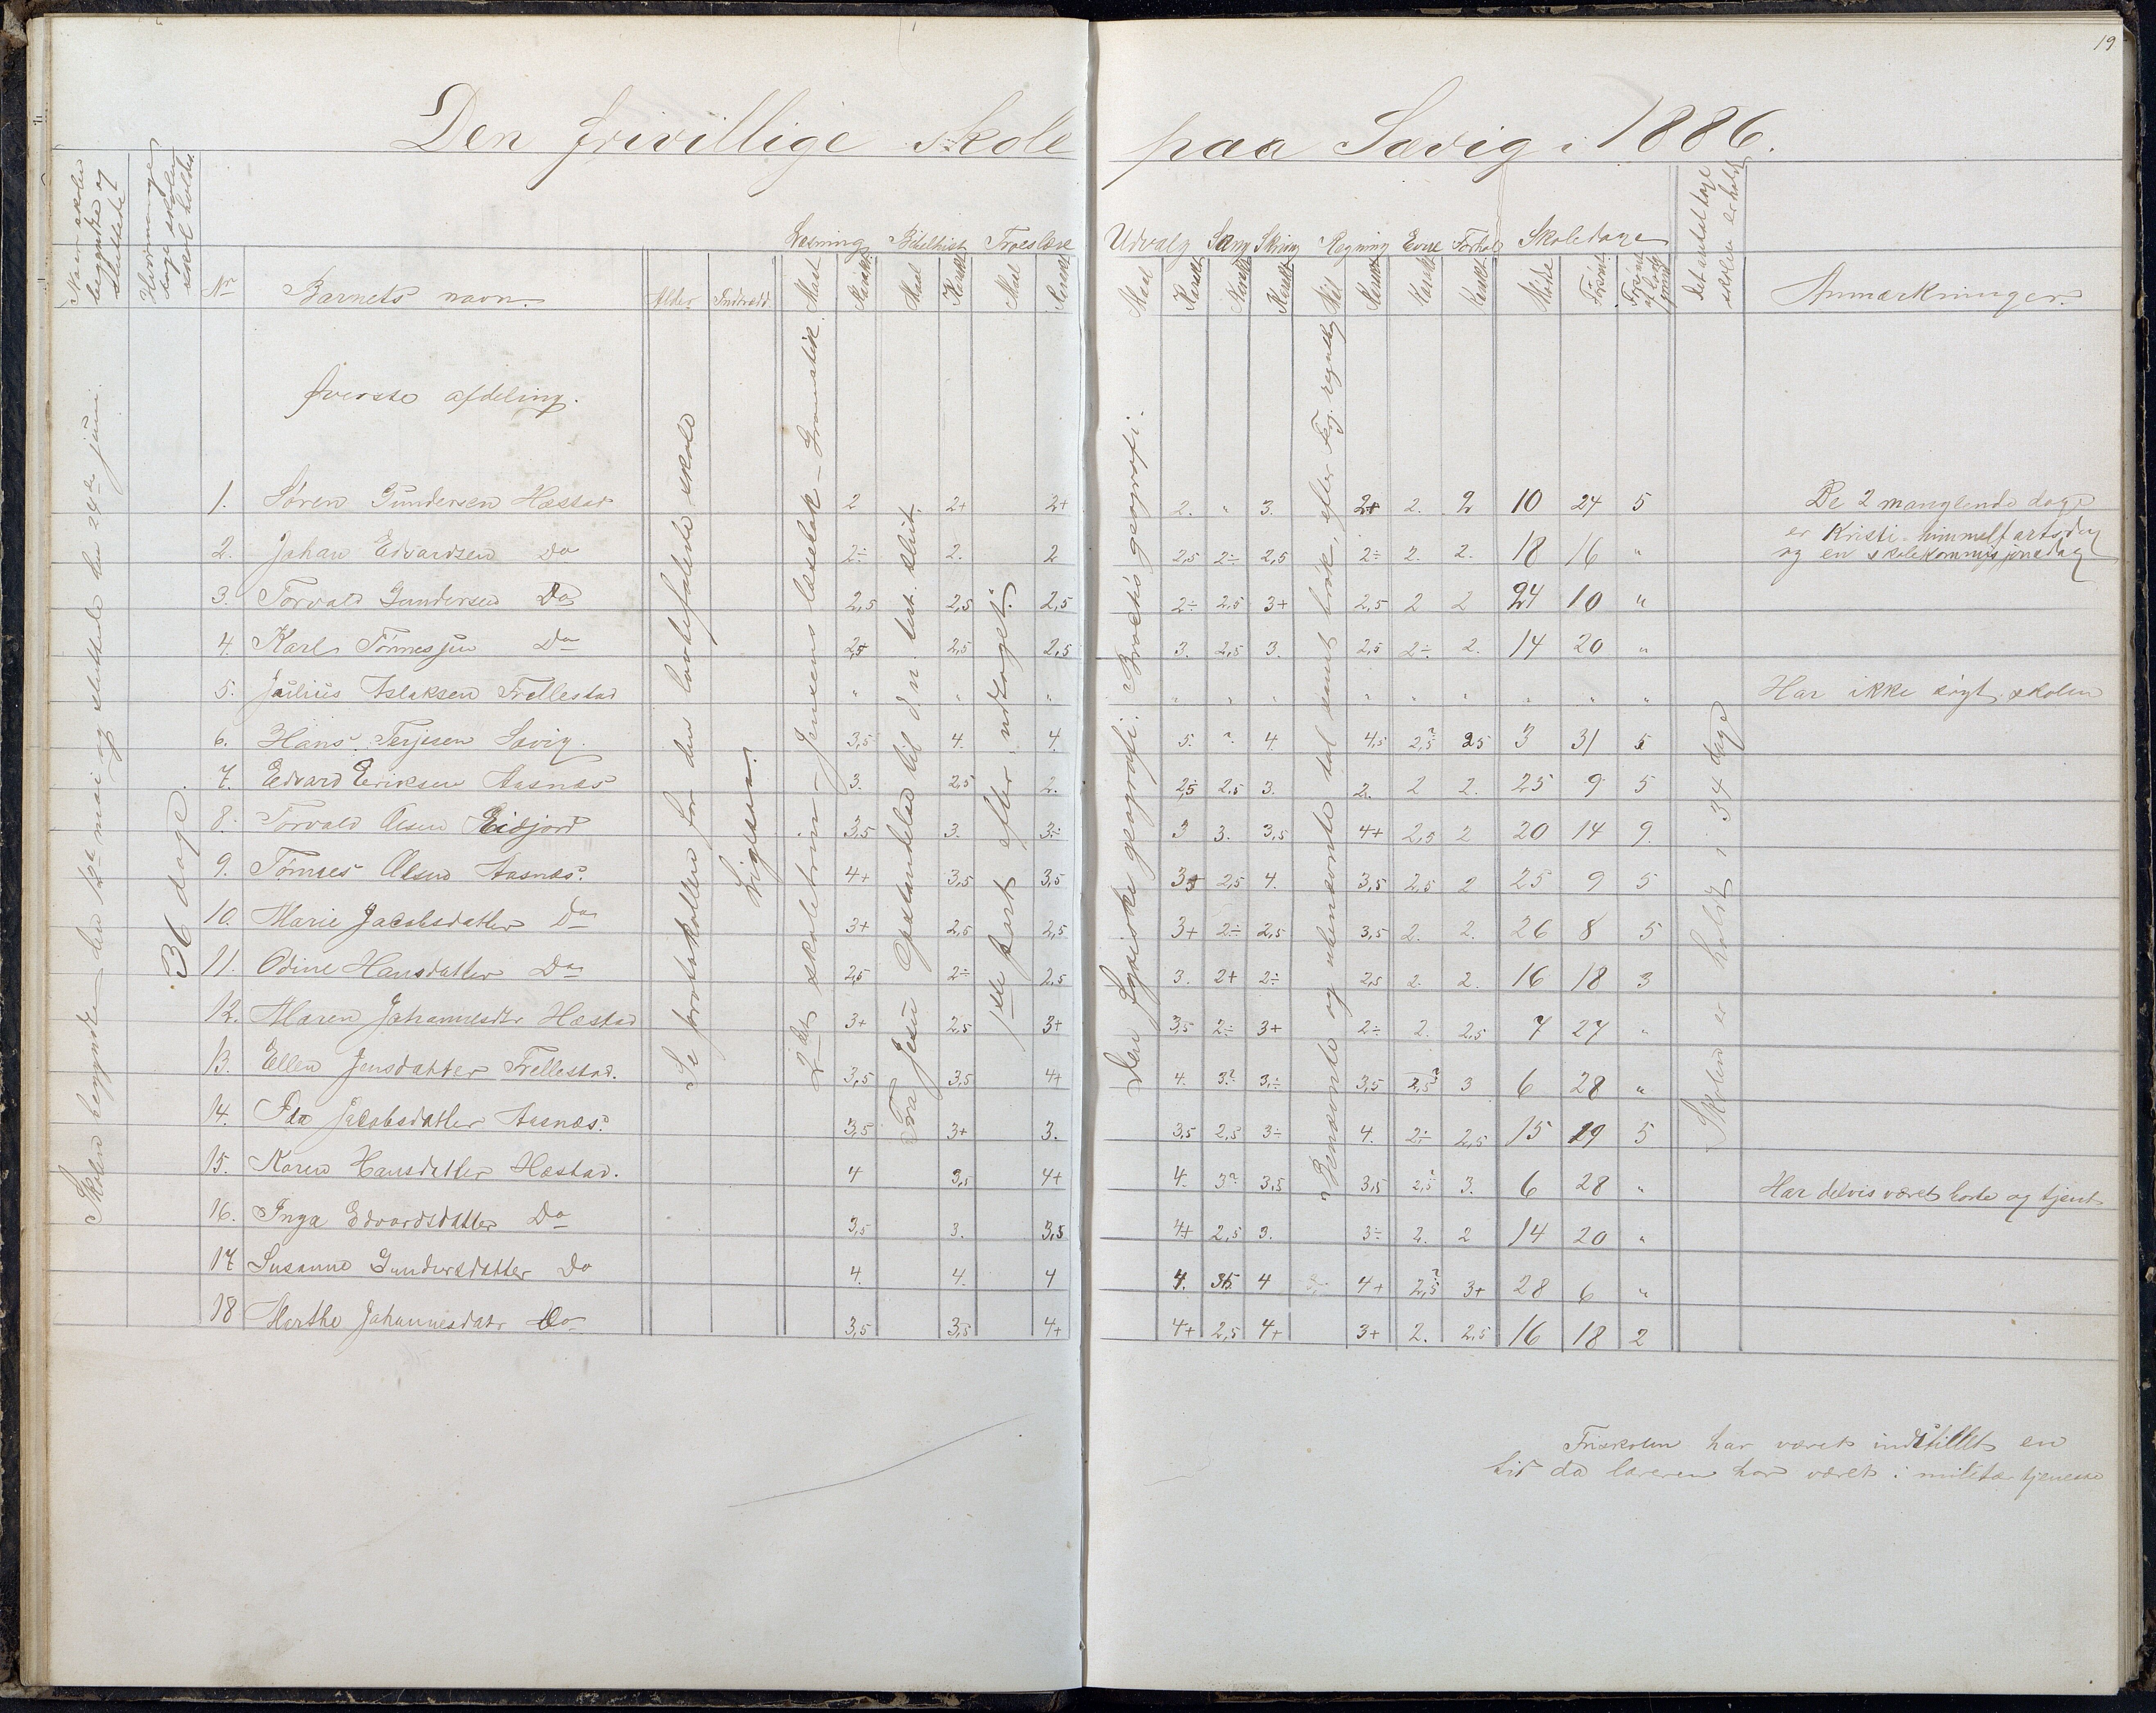 19
Den frivillige skole paa Sævig i 1886.
Naar skolen begyndte og sluttede
Hvormange dage skolen skal holdes
Nr
Barnets navn.
Alder
Indtrædt
Læsning Maal Karakt.
Bibelhist. Maal Karakt
Troeslære Maal Karakt
Udvalg Maal Karakt
Sang Karakt
Skrivng Karakt
Regning Mål Karakt
Evne Karakt
Forhol Karakt
Skoledage Mødte Forsømt Forsømt af lovlg grund
Det antal dage skolen er holdt
Anmærkninger.
Skolen begyndte den 12te mai og sluttede den 24de juni.
36 dage.
Se protokollen for den lovbefalede skole
Ligesaa.
2det skoletrin – Jensens læsebok – Gramatik.
Fra Jesu Opstandelse til d. n. test. slut.
1ste part efter udtoget.
Den Fysiske geografi. Brochs geografi.
Benævnte og ubenævnte tal samt brøk, efter Fog. regnebog
Skolen er holdt i 34 dage
Øverste afdeling.
1. Søren Gundersen Hæstad 2 2+ 2+ 2. " 3. 2+ 2. 2 10 24 5 De 2 manglende dage
er Kristi himmelfartsdag
2. Johan Edvardsen Do 2÷ 2. 2 2,5 2÷ 2,5 2÷ 2. 2. 18 16 " og en skolekommisjonsdag
3. Torvald Gundersen Do 2,5 2,5 2,5 2÷ 2,5 3+ 2,5 2 2 24 10 "
4. Karl Tønnessen Do 2,5 2,5 2,5 3. 2,5 3. 2,5 2÷ 2. 14 20 "
5. Julius Aslaksen Frellestad " " " " " " " " " " " " Har ikke søgt skolen
6. Hans Terjesen Sævig. 3,5 4. 4. 5. ? 4. 4,5 2,5? 25 3 31 5
7. Edvard Eriksen Aasnæs 3. 2,5 2. 2,5 2,5 3. 2. 2 2. 25 9 5
8. Torvald Olsen Eidjord 3,5 3. 3÷ 3 3. 3,5 4+ 2,5 2 20 14 9.
9. Tønnes Olsen Aasnæs. 4+ 3,5 3,5 3+ 2,5 4. 3,5 2,5 2 25 9 5
10. Marie Jacobsdatter Do 3+ 2,5 2,5 3+ 2÷ 2,5 3,5 2. 2. 26 8 5
11. Odine Hansdatter Do 2,5 2÷ 2,5 3. 2+ 2÷ 2,5 2. 2. 16 18 3
12. Maren Johannesdtr Hæstad 3+ 2,5 3+ 3,5 2÷ 3+ 2÷ 2. 2,5 7 27 "
13. Ellen Jensdatter Frellestad. 3,5 3,5 4+ 4. 3? 3÷ 3,5 2,5? 3 6 28 "
14. Ida Jacobsdatter Aasnæs. 3,5 3+ 3. 3,5 2,5 3÷ 4. 2÷ 2,5 15 19 5
15. Karen Hansdatter Hæstad. 4 3,5 4+ 4. 3? 3,5 3,5 2,5? 3. 6 28 " Har delvis været borte og tjent
16. Inga Edvardsdatter Do 3,5 3. 3,5 4+ 2,5 3. 3÷ 2. 2 14 20 "
17 Susanne Gundersdatter Do 4. 4. 4 4. 3,5 4 4+ 2,5? 3+ 28 6 "
18 Marthe Johannesdatr Do 3,5 3,5 4+ 4+ 2,5 4+ 3+ 2. 2,5 16 18 2
Friskolen har været indstillet en
tid da læreren har været i militær tjeneste